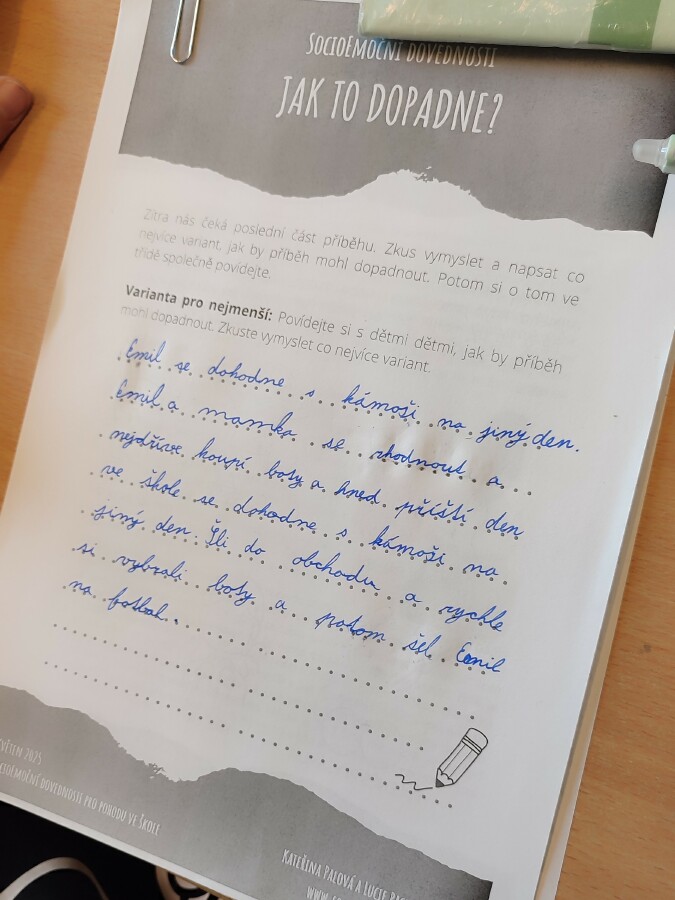 SOCIOEMOČNÍ DOVEDNOSTI
JAK TO DOPADNE?
Zítra nás čeká poslední část příběhu. Zkus vymyslet a napsat co
nejvíce variant, jak by příběh mohl dopadnout. Potom si o tom ve
třídě společně povídejte.
Varianta pro nejmenší: Povídejte si s dětmi dětmi, jak by příběh
mohl dopadnout. Zkuste vymyslet co nejvíce variant.
Emil se dohodne s kámoši na jiný den.
Emil a mamka se rhodnout a
nejdříve koupí boty a hned příští den
ve škole se dohodne s kámoši na
jiný den. Šli do obchodu a rychle
si vybrali boty a potom šel Emil
na fotbal.
KVĚTEN 2025
SOCIOEMOČNÍ DOVEDNOSTI PRO POHODU VE ŠKOLE
KATEŘINA PALOVÁ A LUCIE
WWW.